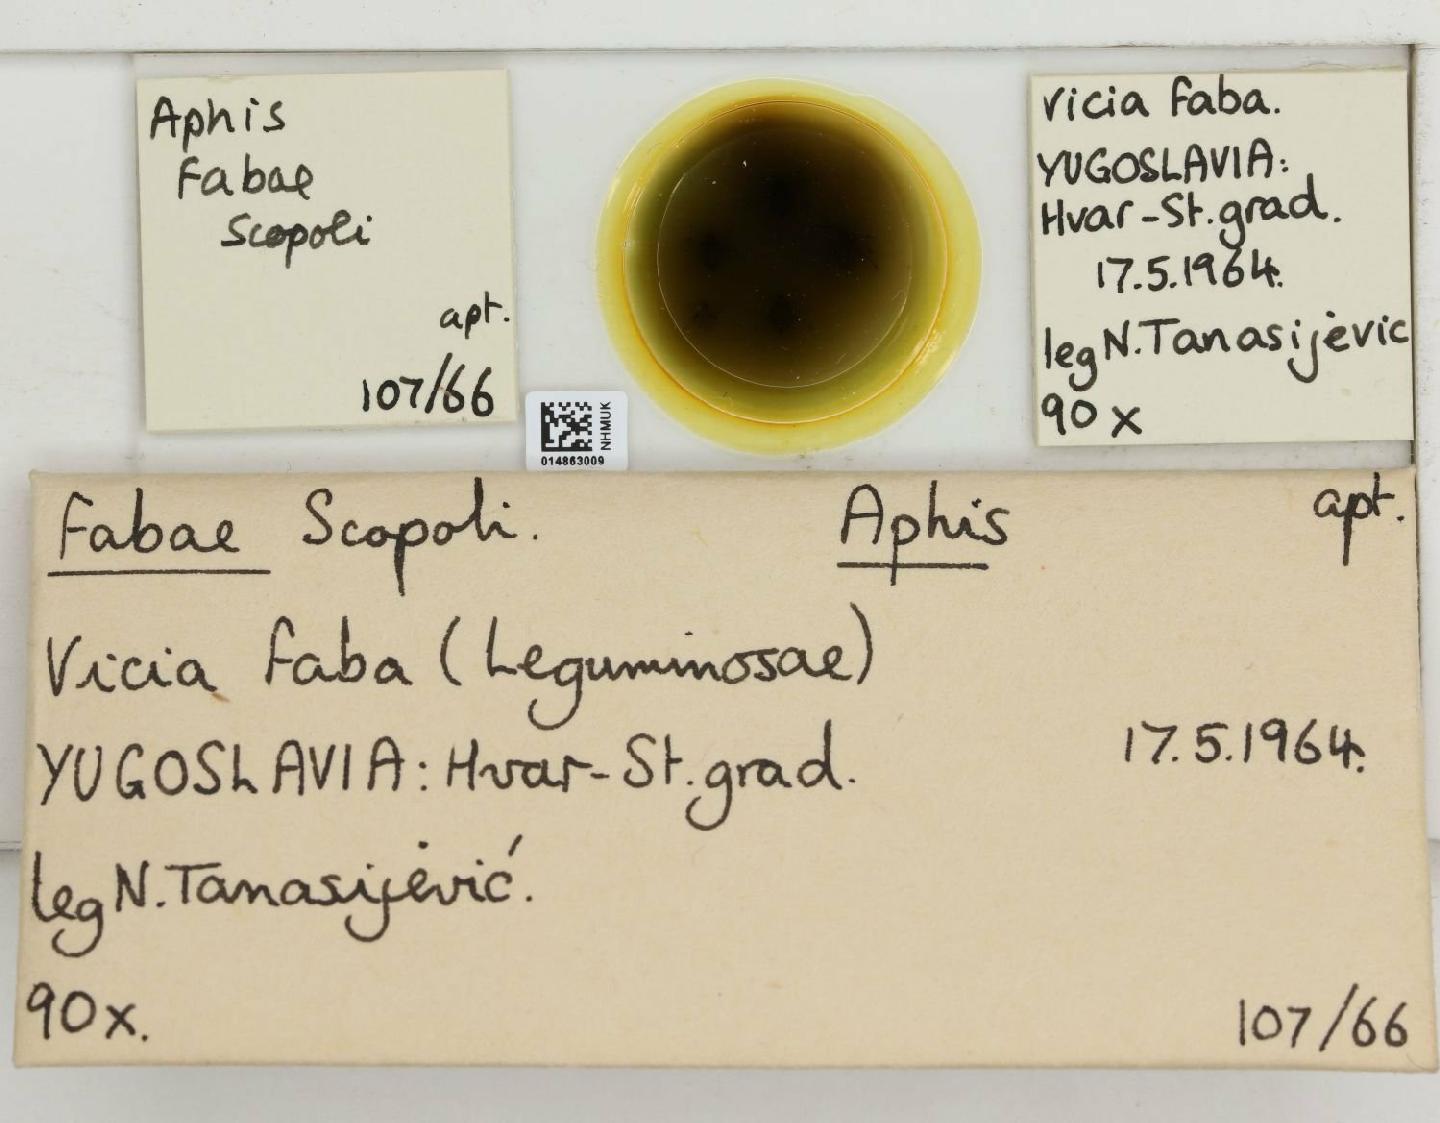 Aphis
Fabae
Scopoli
apt.
107/66
NHMUK
014863009
Vicia faba.
YUGOSLAVIA:
Hvar-St.grad.
17.5.1964.
leg N.Tanasijevic
90 x
Fabae Scopoli. Aphis apt.
Vicia faba (Leguminosae)
YUGOSLAVIA: Hvar-St.grad. 17.5.1964.
leg N.Tanasijević.
90x. 107/66